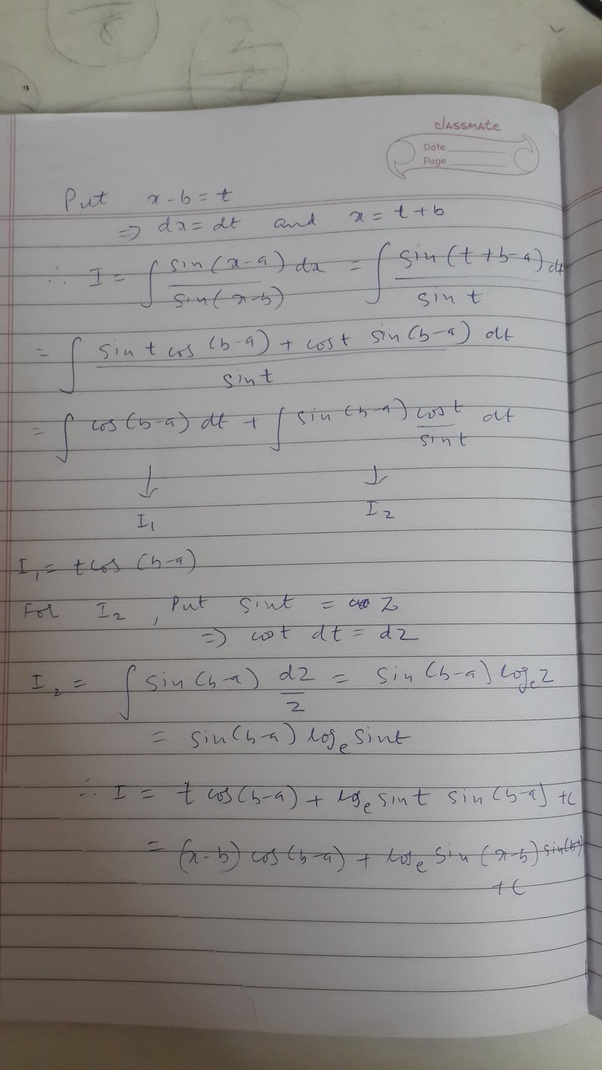 classmate
Date
Page
Put x-b=t
⇒ dx=dt and x=t+b
∴ I = ∫ sin(x-a)/sin(x-b) dx = ∫ sin(t+b-a)/sin t dt
= ∫ (sin t cos (b-a) + cos t sin(b-a))/sin t dt
= ∫ cos(b-a) dt + ∫ sin(b-a) cos t/sin t dt
↓ ↓
I₁ I₂
I₁ = t cos (b-a)
For I₂, Put sin t = z
⇒ cost dt = dz
I₂ = ∫ sin(b-a) dz/z = sin(b-a) logₑz
= sin(b-a) logₑ sint
∴ I = t cos(b-a) + logₑ sin t sin(b-a) + c
= (x-b) cos(b-a) + logₑ sin (x-b) sin(b-a)
+ c